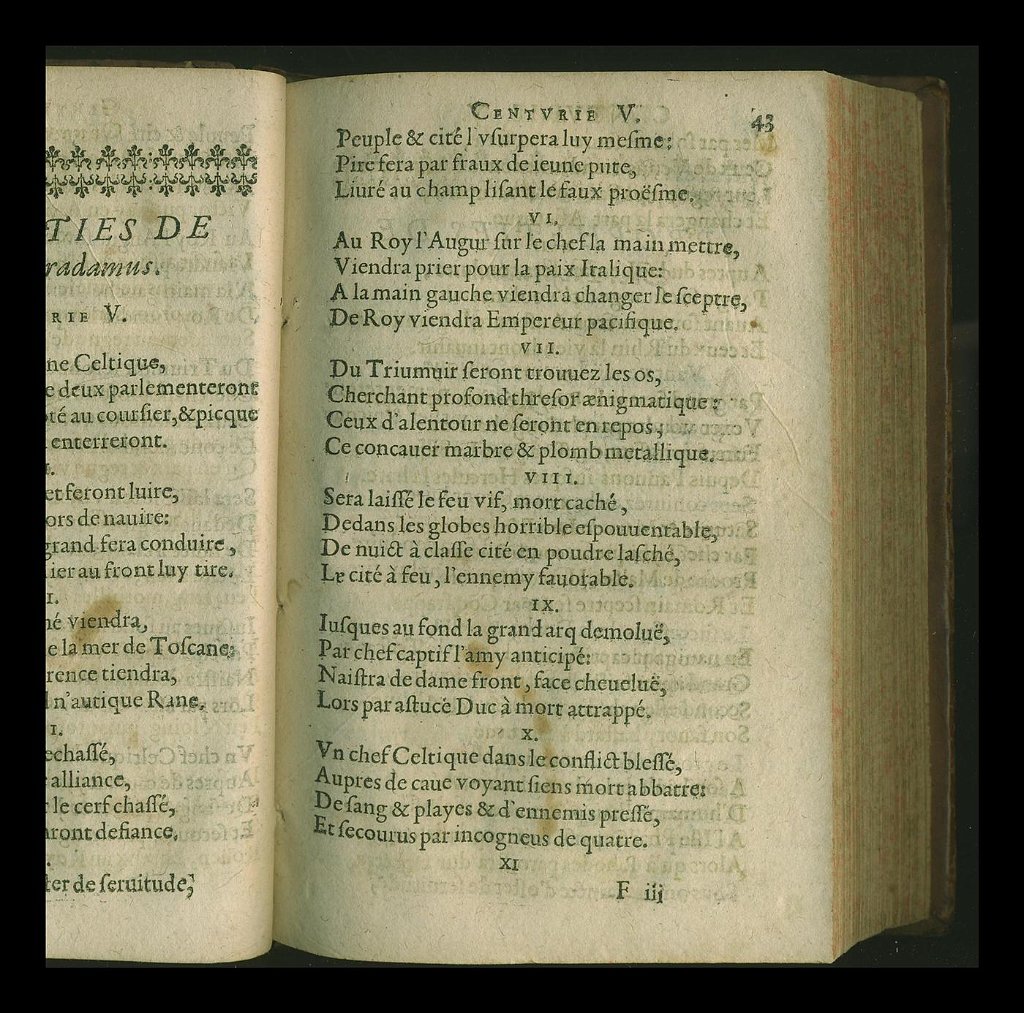 TIES DE
radamus.
RIE V.
ne Celtique,
e deux parlementeront
té au coursier, &picque
enterreront.
I.
et feront luire,
ors de nauire:
grand fera conduire,
ier au front luy tire.
I.
né viendra,
e la mer de Toscane:
rence tiendra,
n'autique Rane.
I.
echassé,
alliance,
r le cerf chassé,
aront defiance.
.
ter de seruitude,
CENTVRIE V. 43
Peuple & cité l'vsurpera luy mesme:
Pire fera par fraux de ieune pute,
Liuré au champ lisant le faux proësme.
VI.
Au Roy l'Augur sur le chef la main mettre,
Viendra prier pour la paix Italique:
A la main gauche viendra changer le sceptre,
De Roy viendra Empereur pacifique.
VII.
Du Triumuir seront trouuez les os,
Cherchant profond thresor ænigmatique:
Ceux d'alentour ne seront en repos,
Ce concauer marbre & plomb metallique.
VIII.
Sera laissé le feu vif, mort caché,
Dedans les globes horrible espouuentable,
De nuict à classe cité en poudre lasché,
Le cité à feu, l'ennemy fauorable.
IX.
Iusques au fond la grand arq demoluë,
Par chef captif l'amy anticipé:
Naistra de dame front, face cheueluë,
Lors par astuce Duc à mort attrappé.
X.
Vn chef Celtique dans le conflict blessé,
Aupres de caue voyant siens mort abbatre:
De sang & playes & d'ennemis pressé,
Et secourus par incogneus de quatre.
XI
F iij